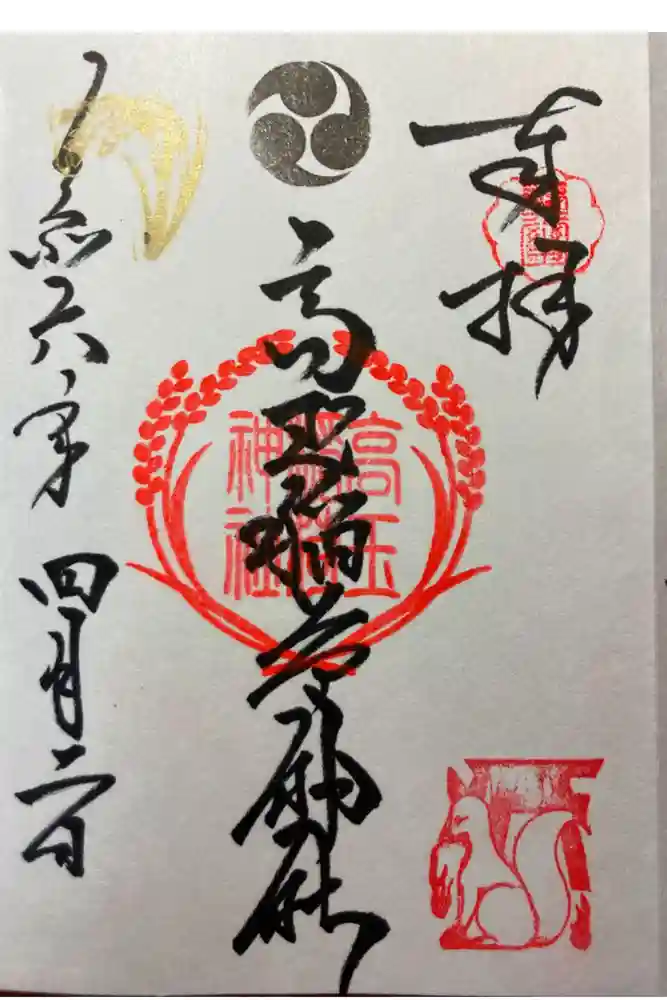 奉拝
高玉稲荷神社
令和六年 四月二日
高玉
稲荷
神社